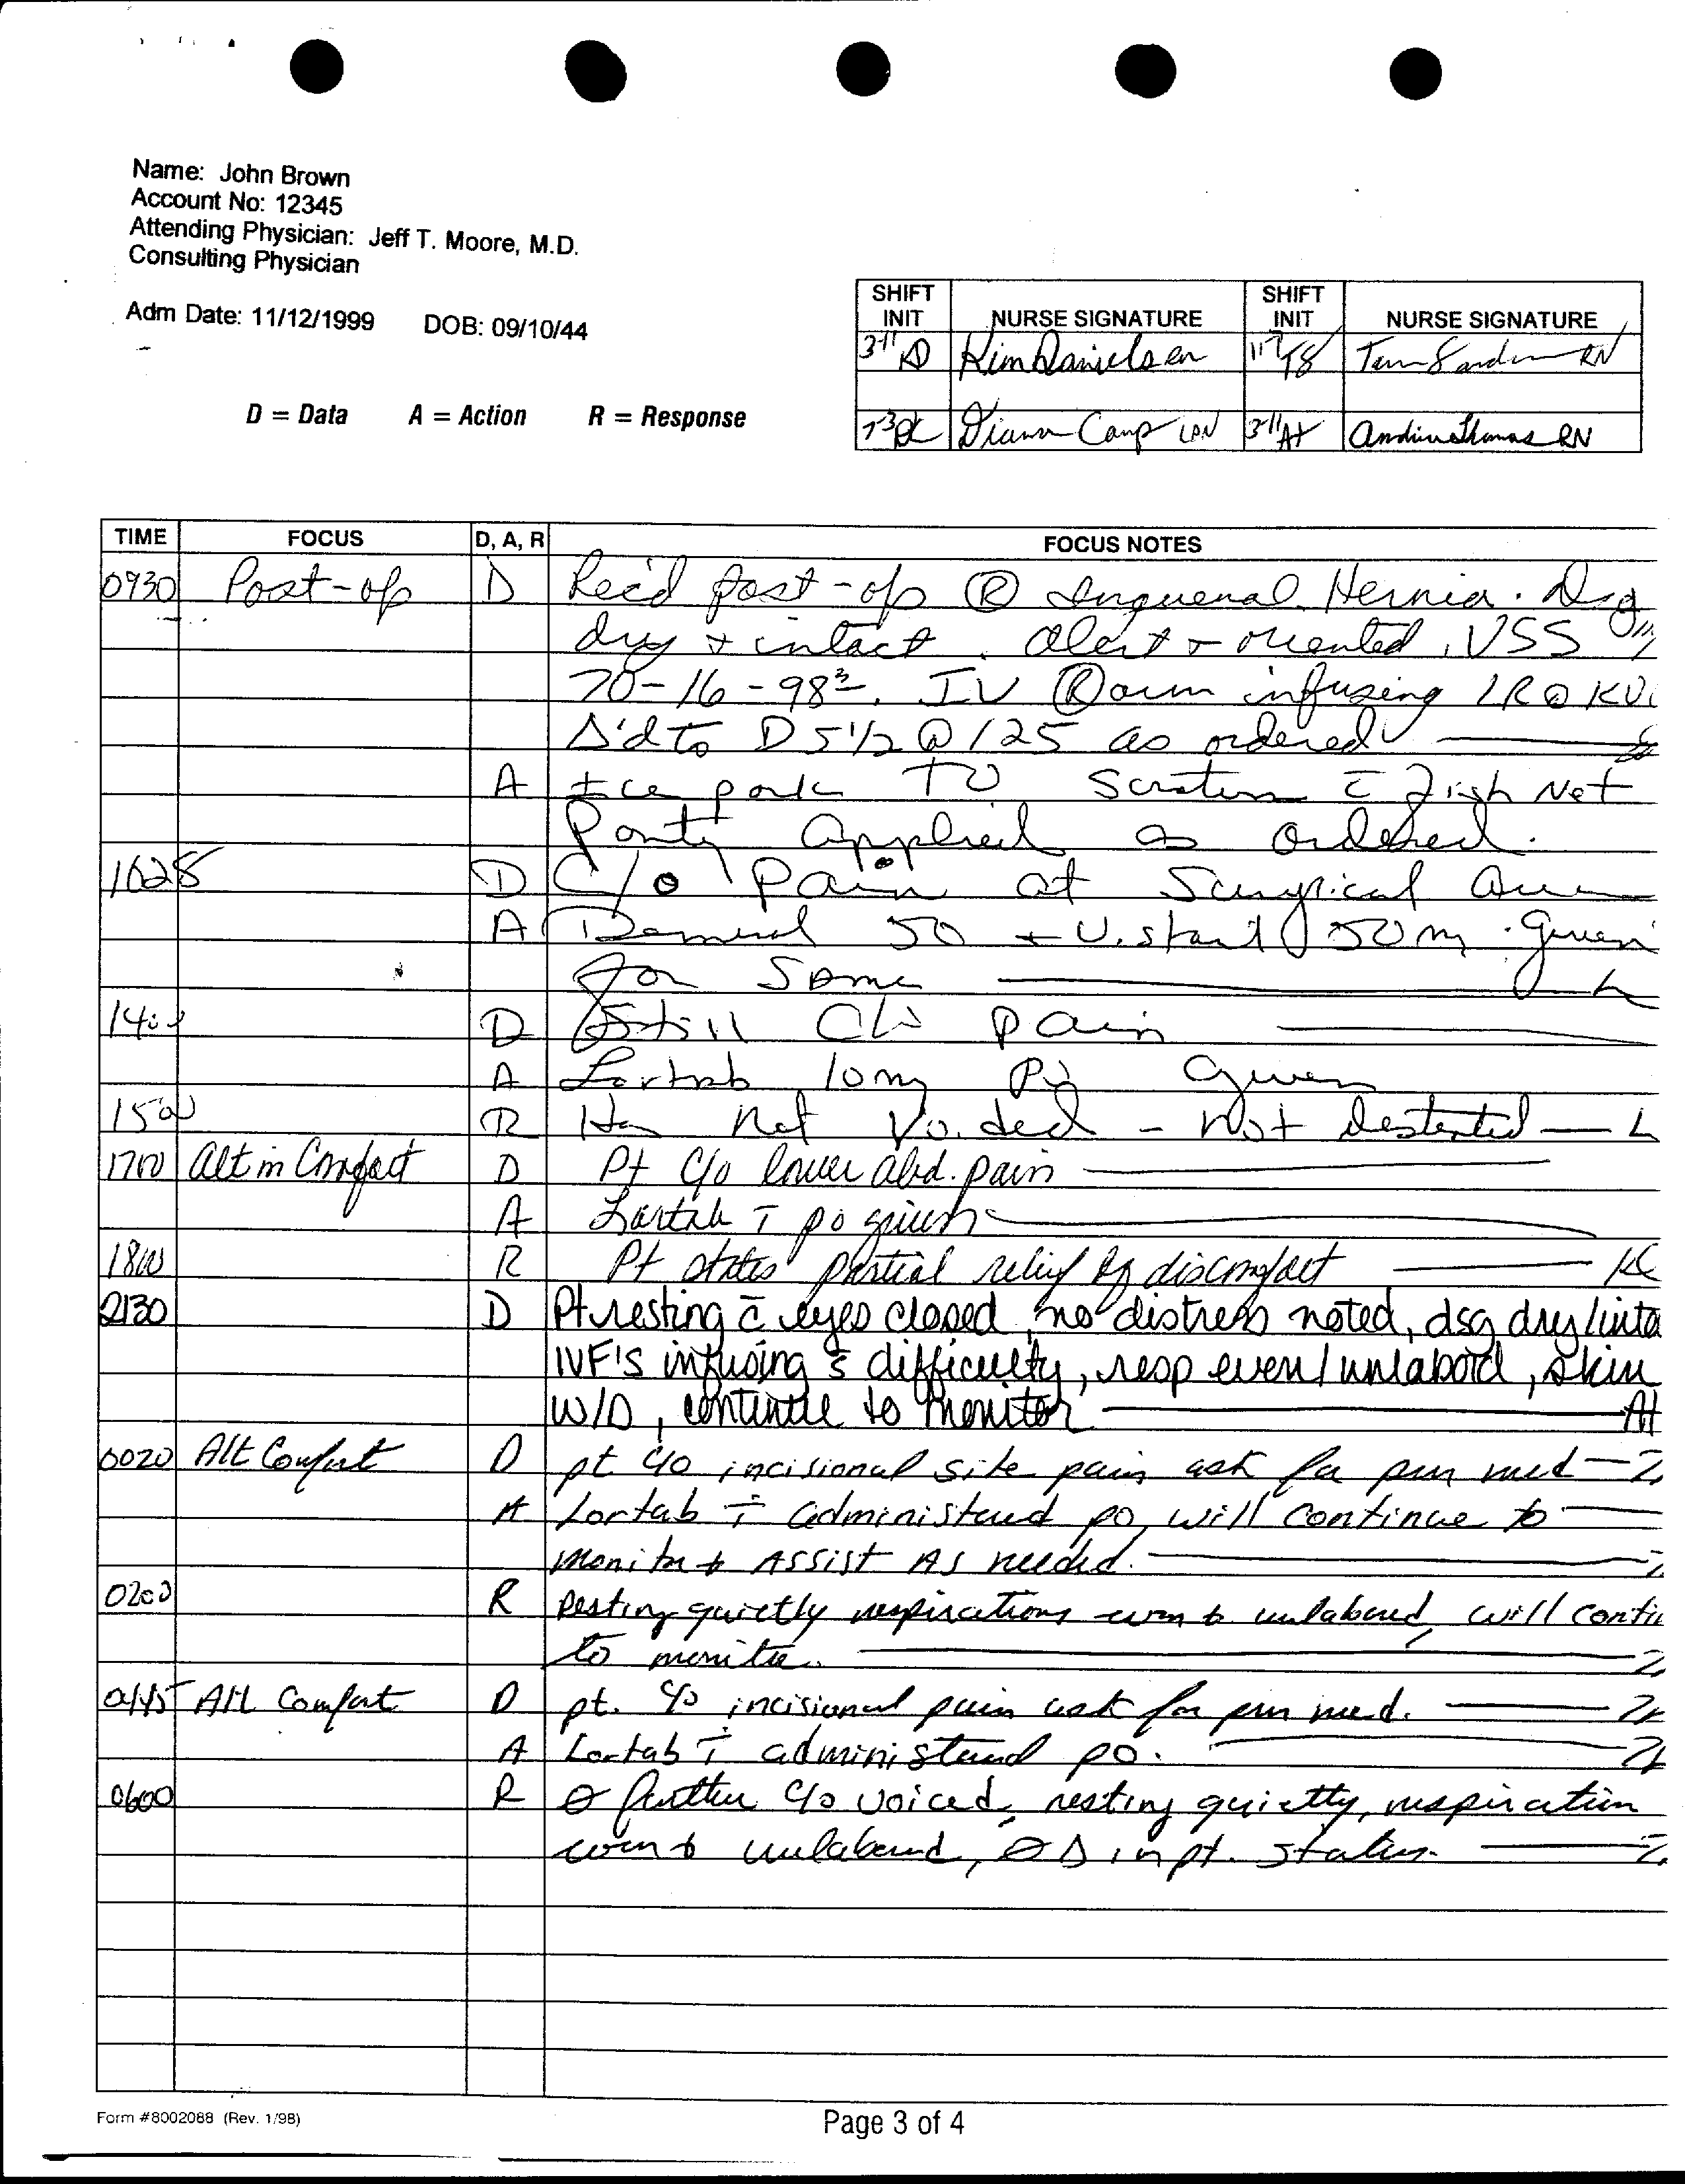 Name: John Brown
Account No: 12345
Attending Physician: Jeff T. Moore, M.D.
Consulting Physician
Adm Date: 11/12/1999 DOB: 09/10/44
SHIFT INIT NURSE SIGNATURE SHIFT INIT NURSE SIGNATURE
3-11 KD Kim Danielsen 11-7 RN
D = Data A = Action R = Response
7-3 DC Diann Camp LPN 3-11 AT Andrea Thomas RN
TIME FOCUS D, A, R FOCUS NOTES
0930 Post-op D Rec'd post-op Ⓡ Inguenal Hernia. Dsg
dry + intact. Alert + oriented, VSS
70-16-98³. IV Ⓡ arm infusing LR @ KVO
Δ'd to D5½ @ 125 as ordered
A Ice pack TO c Fish Net
Panty applied as ordered.
D C/o Pain at Surgical area
A Demerol 50 + Vistaril 50 mg given
for same
D Still C/o pain
A Lortab 10 mg PO given
1500 R Has not voided - Not destended
1700 Alt in Comfort D Pt c/o lower abd. pain
A Lortab T po given
1800 R Pt states partial relief of discomfort
2130 D Pt resting c̄ eyes closed, no distress noted, dsg dry/inta
IVF's infusing s̄ difficulty, resp even/unlabor'd, skin
W/D, continue to monitor AT
0020 Alt Comfort D pt c/o incisional site pain ask for prn med
A Lortab T administered po, will continue to
monitor + Assist As needed.
0200 R Resting quietly respirations even + unlabored, will contin
to monitor.
0445 Alt Comfort D pt. c/o incisional pain ask for prn med.
A Lortab T administered po.
0600 R Ø further c/o voiced, resting quietly, respiration
even + unlabored, Ø Δ in pt. status.
Form #8002088 (Rev. 1/98)
Page 3 of 4